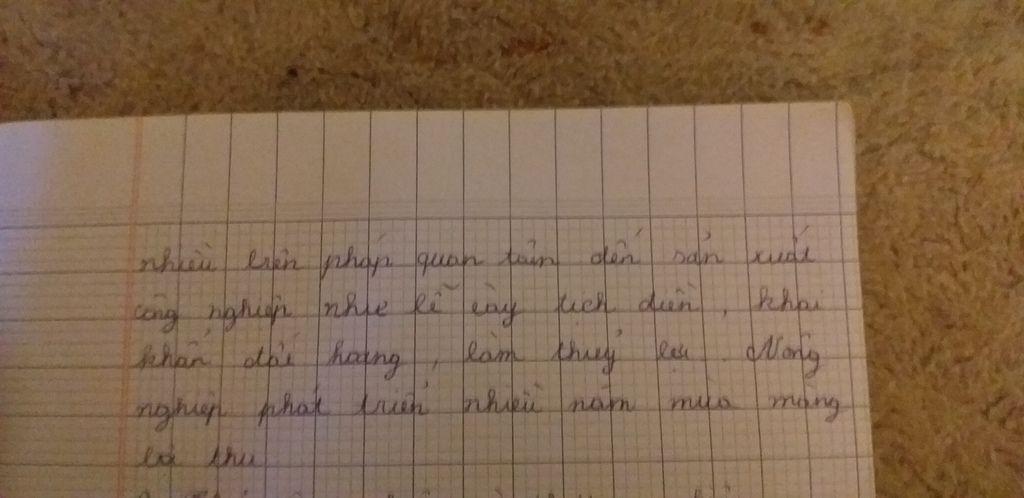 nhiều biện pháp quan tâm đến sản xuất
công nghiệp như lễ cày tịch điền, khai
khẩn đất hoang, làm thuỷ lợi. Nông
nghiệp phát triển nhiều năm mùa màng
bội thu